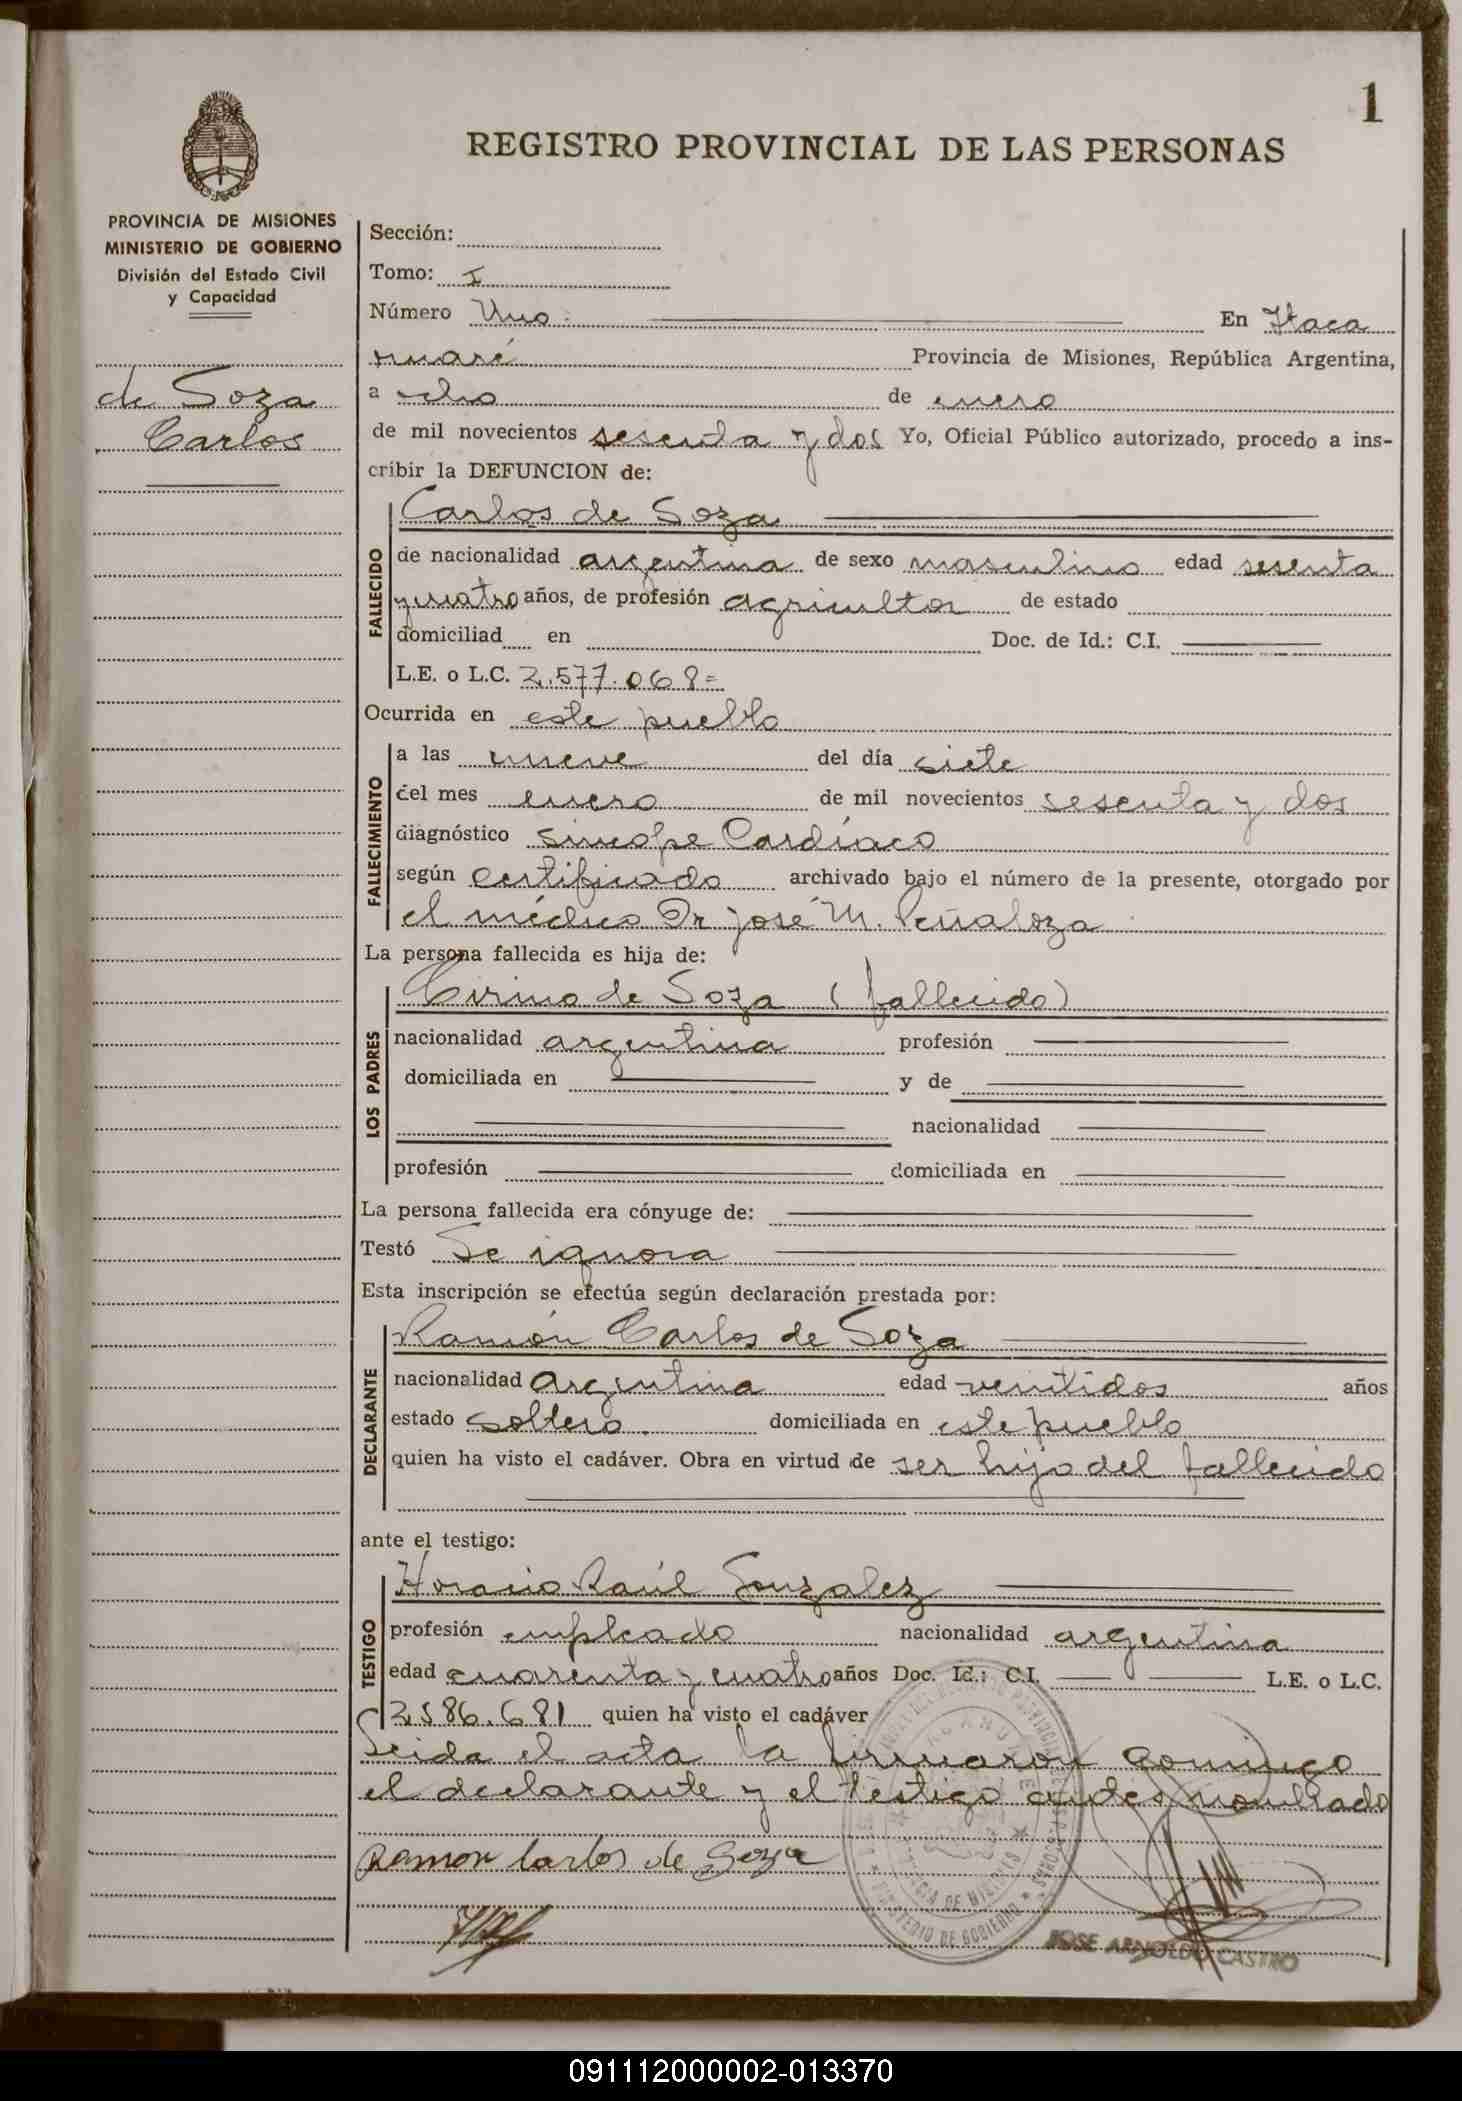 1
REGISTRO PROVINCIAL DE LAS PERSONAS
PROVINCIA DE MISIONES
MINISTERIO DE GOBIERNO
División del Estado Civil
y Capacidad
de Soza
Carlos
Sección:
Tomo: I
Número Uno En Itaca
ruaré Provincia de Misiones, República Argentina,
a ocho de enero
de mil novecientos sesenta y dos Yo, Oficial Público autorizado, procedo a ins-
cribir la DEFUNCION de:
FALLECIDO
Carlos de Soza
de nacionalidad argentina de sexo masculino edad sesenta
y cuatro años, de profesión agricultor de estado
domiciliad en Doc. de Id.: C.I.
L.E. o L.C. 2.577.068=
Ocurrida en este pueblo
FALLECIMIENTO
a las nueve del día siete
del mes enero de mil novecientos sesenta y dos
diagnóstico sincope Cardíaco
según certificado archivado bajo el número de la presente, otorgado por
el médico Dr José M. Peñaloza
La persona fallecida es hija de:
LOS PADRES
Cirino de Soza (fallecido)
nacionalidad argentina profesión
domiciliada en y de
nacionalidad
profesión domiciliada en
La persona fallecida era cónyuge de:
Testó Se ignora
Esta inscripción se efectúa según declaración prestada por:
DECLARANTE
Ramón Carlos de Soza
nacionalidad argentina edad ventidos años
estado soltero. domiciliada en este pueblo
quien ha visto el cadáver. Obra en virtud de ser hijo del fallecido
ante el testigo:
TESTIGO
Horacio Raúl Gonzalez
profesión empleado nacionalidad argentina
edad cuarenta y cuatro años Doc. Id.: C.I. L.E. o L.C.
2.586.681 quien ha visto el cadáver
Leida el acta la firmaron conmigo
el declarante y el testigo
Ramon Carlos de Soza
MINISTERIO DE GOBIERNO
JOSE ARNOLDO CASTRO
091112000002-013370